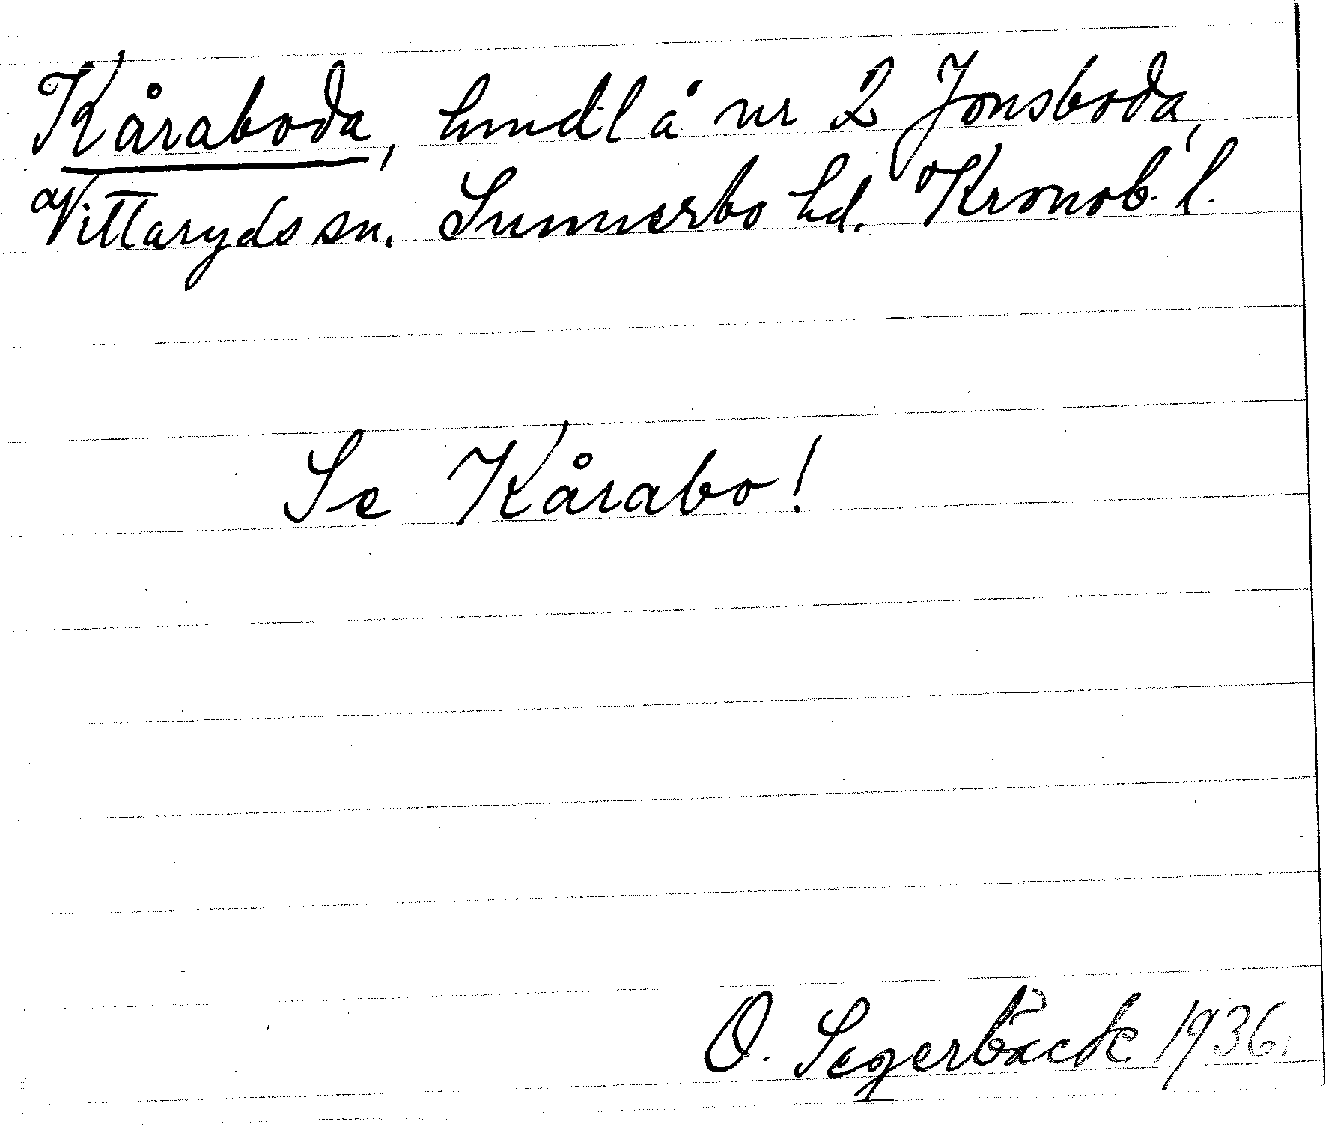 Kåraboda, hmdl å nr 2 Jonsboda,
Vittaryds sn. Sunnerbo hd. Kronob. l.
Se Kårabo!
O. Segerbäck 1936.